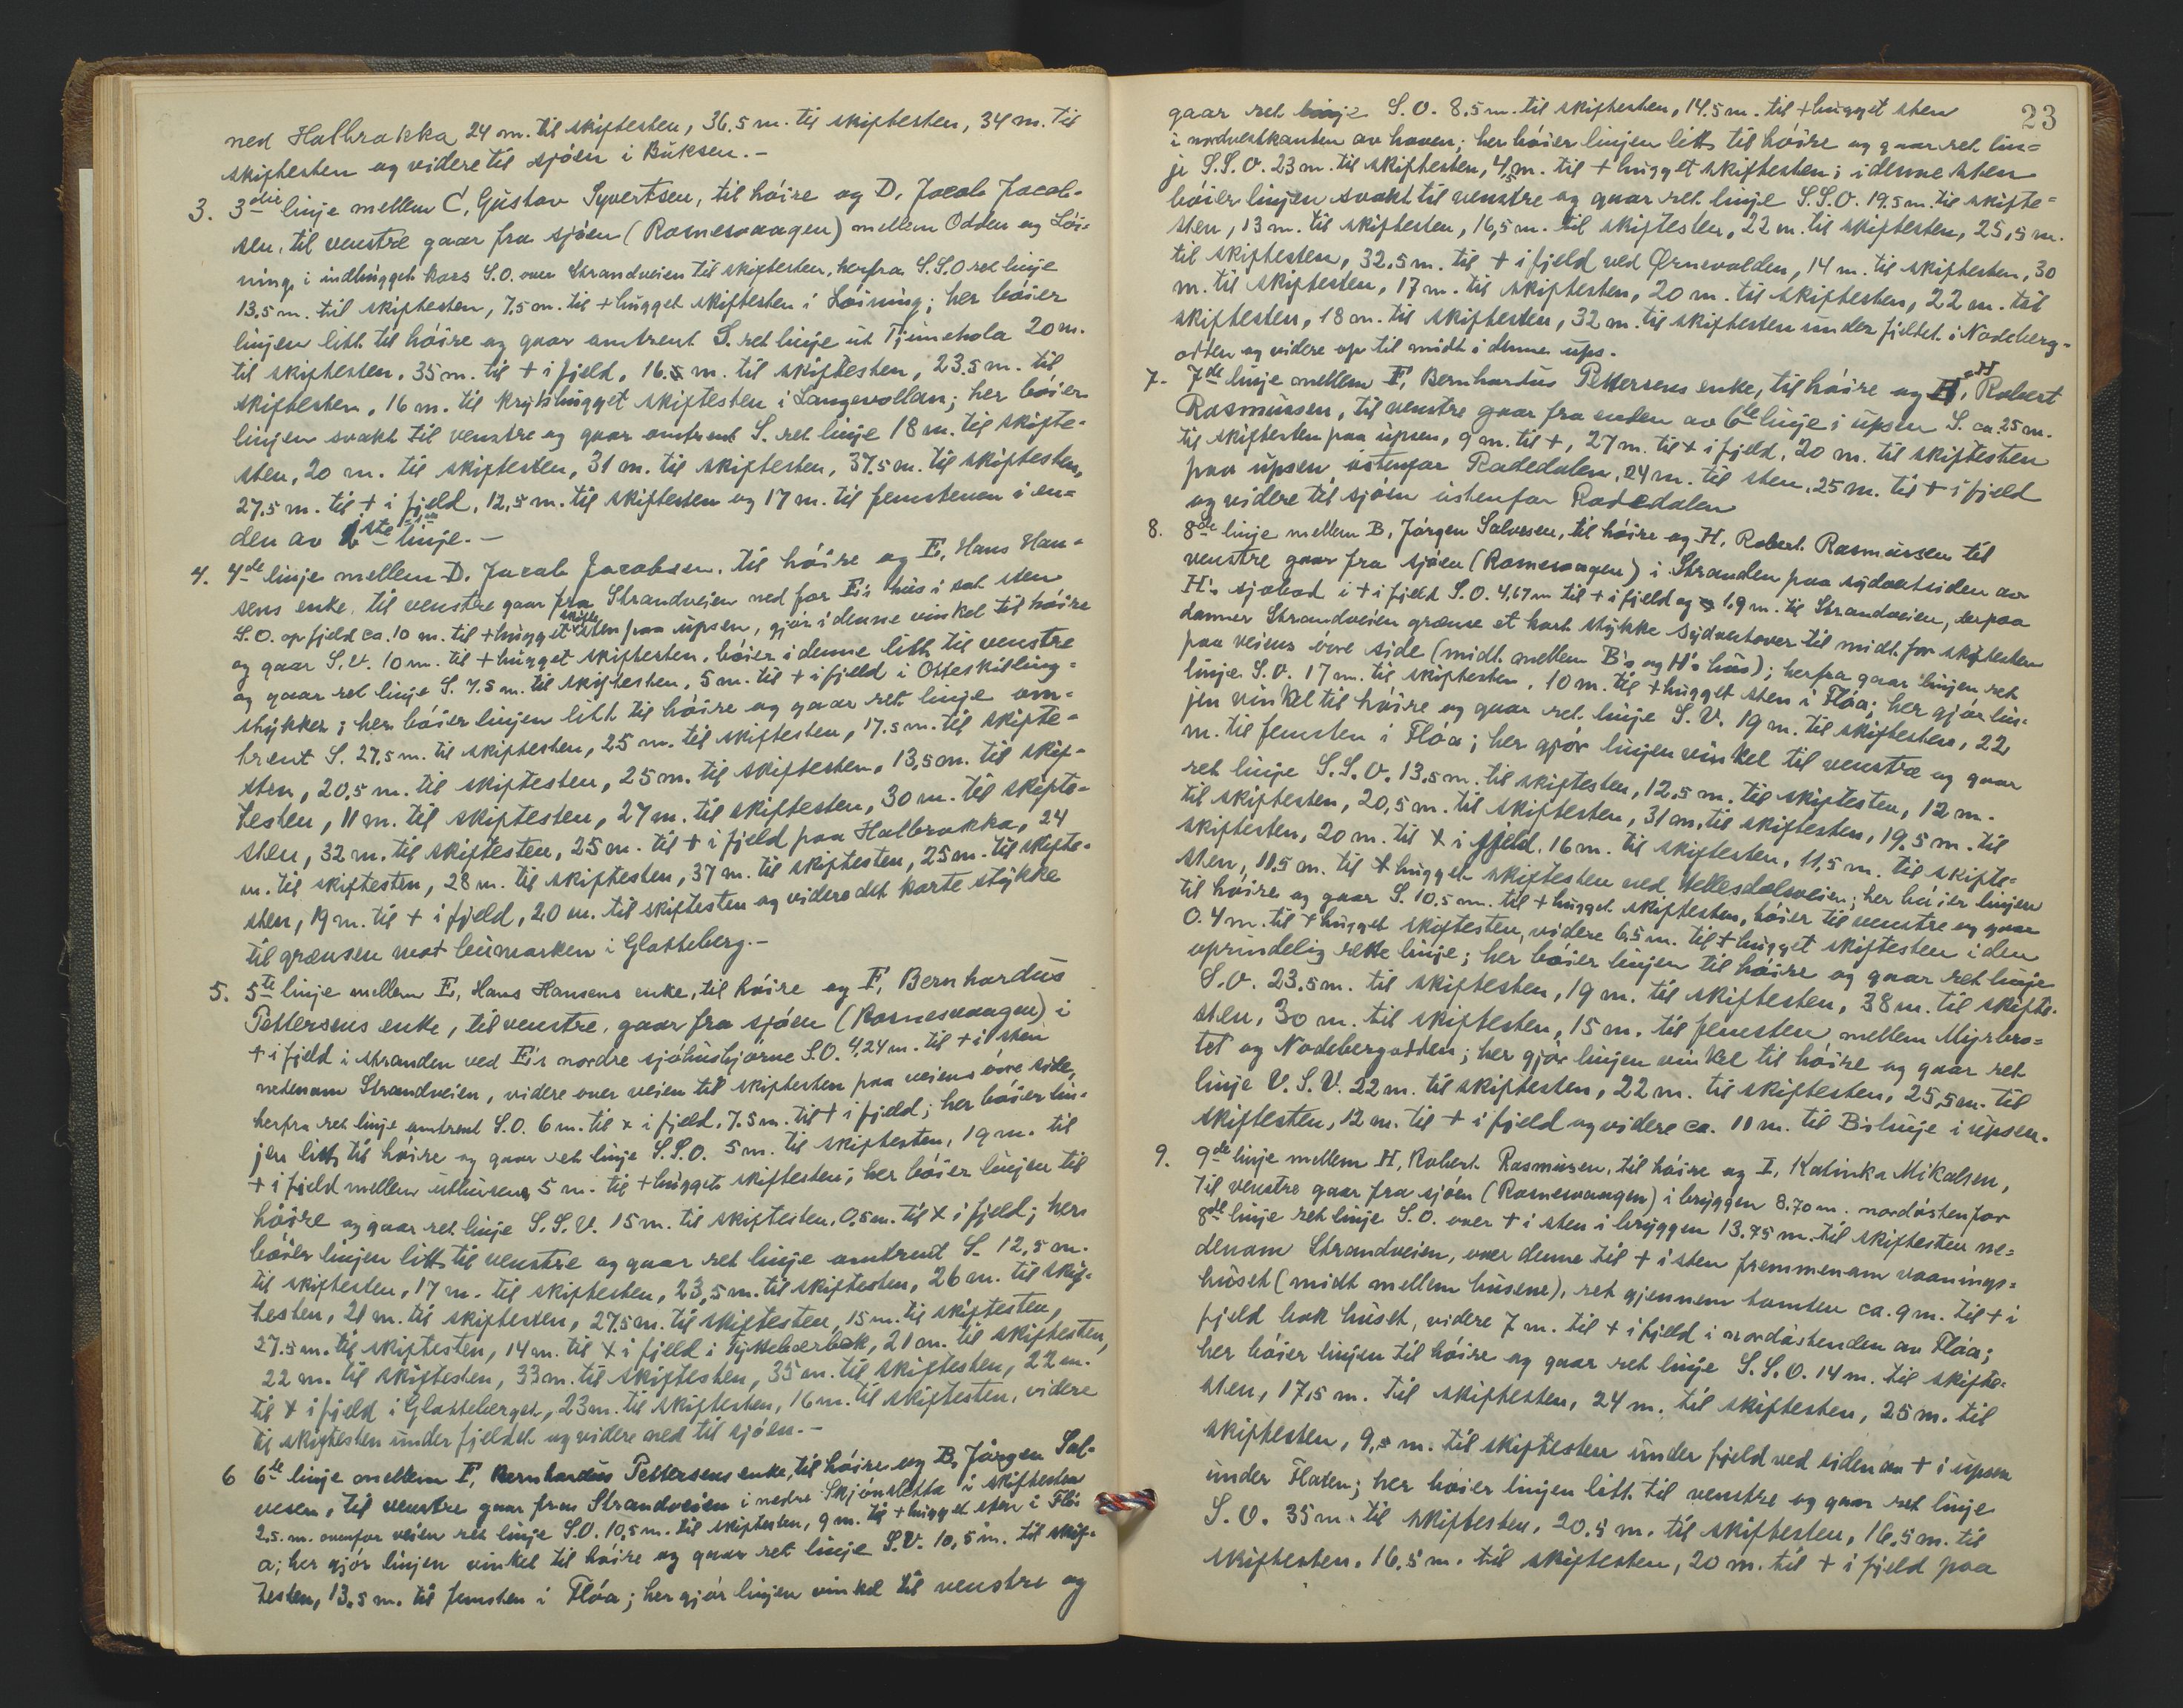 ned Halbrakka 24 m. til skiftesten, 36.5 m. til skiftesten, 34 m. til
skiftesten og videre til sjöen i Buksen.-
3. 3die linje mellem C, Gustav Syvertsen, til höire og D. Jacob Jacob-
sen, til venstre gaar fra sjöen (Rosnesvaagen) mellem Odden og Löi-
ning, i indhugget kors S.O. over Strandveien til skiftesten, herfra S.S.O ret linje
13.5 m. til skiftesten, 7.5 m. til + hugget skiftesten i Löining; her böier
linjen litt til höire og gaar omtrent S. ret linje ut Tjuvehola 20 m.
til skiftesten, 35 m. til + i fjeld, 16.5 m. til skiftesten, 23.5 m. til
skiftesten, 16 m. til krydshugget skiftesten i Langevollan; her böier
linjen svakt til venstre og gaar omtrent S. ret linje 18 m. til skifte-
sten, 20 m. til skiftesten, 31 m. til skiftesten, 37.5 m. til skiftesten,
27.5 m. til + i fjeld, 12.5 m. til skiftesten og 17 m. til femstenen i en-
den av 1ste linje.-
4. 4de linje mellem D. Jacob Jacobsen, til höire og E, Hans Han-
sens enke, til venstre gaar fra Strandveien ned for E's hus i sat sten
S.O. op fjeld ca. 10 m. til + hugget skiftesten paa upsen, gjör i denne vinkel til höire
og gaar S.V. 10 m. til + hugget skiftesten, böier i denne litt til venstre
og gaar ret linje S. 7.5 m. til skiftesten, 5 m. til + i fjeld i Otteskilling-
stykker; her böier linjen litt til höire og gaar ret linje om-
trent S. 27.5 m. til skiftesten, 25 m. til skiftesten, 17.5 m. til skifte-
sten, 20.5 m. til skiftesten, 25 m. til skiftesten, 13.5 m. til skif-
testen, 11 m. til skiftesten, 27 m. til skiftesten, 30 m. til skifte-
sten, 32 m. til skiftesten, 25 m. til + i fjeld paa Halbrakka, 24
m. til skiftesten, 28 m. til skiftesten, 37 m. til skiftesten, 25 m. til skifte-
sten, 19 m. til + i fjeld, 20 m. til skiftesten og videre det korte stykke
til grænsen mot heimarken i Glatteberg.-
5. 5te linje mellem E, Hans Hansens enke, til höire og F, Bernhardus
Pettersens enke, til venstre, gaar fra sjöen (Rosnesvaagen) i
+ i fjeld i stranden ved E's nordre sjöhushjörne S.O. 4.24 m. til + i sten
nedenom Strandveien, videre over veien til skiftesten paa veiens övre side,
herfra ret linje omtrent S.O. 6 m. til x i fjeld, 7.5 m. til + i fjeld; her böier lin-
jen litt til höire og gaar ret linje S.S.O. 5 m. til skiftesten, 19 m. til
+ i fjeld mellem uthusene, 5 m. til + hugget skiftesten; her böier linjen til
höire og gaar ret linje S.S.V. 15 m. til skiftesten, 0.5 m. til x i fjeld; her
böier linjen litt til venstre og gaar ret linje omtrent S. 12,5 m.
til skiftesten, 17 m. til skiftesten, 23,5 m. til skiftesten, 26 m. til skif-
testen, 21 m. til skiftesten, 27.5 m. til skiftesten, 15 m. til skiftesten,
27.5 m. til skiftesten, 14 m. til x i fjeld i Tyttebærbak, 21 m. til skiftesten,
22 m. til skiftesten, 33 m. til skiftesten, 35 m. til skiftesten, 22 m.
til x i fjeld i Glatteberget, 23 m. til skiftesten, 16 m. til skiftesten, videre
til skiftesten under fjeldet og videre ned til sjöen.-
6 6te linje mellem F, Bernhardus Pettersens enke, til höire og B, Jörgen Sal-
vesen, til venstre gaar fra Strandveien i nedre Skjönsletta i skiftesten
2.5 m. ovenfor veien ret linje S.O. 10,5 m. til skiftesten, 9 m. til + hugget sten i Flö-
a; her gjör linjen vinkel til höire og gaar ret linje S.V. 10,5 m. til skif-
testen, 13.5 m. til femsten i Flöa; her gjör linjen vinkel til venstre og
23
gaar ret linje S.O. 8.5 m. til skiftesten, 14.5 m. til + hugget sten
i nordvestkanten av haven; her böier linjen litt til höire og gaar ret lin-
je S.S.O. 23 m. til skiftesten, 4,5 m. til + hugget skiftesten; i denne sten
böier linjen svakt til venstre og gaar ret linje S.S.O. 19.5 m. til skifte-
sten, 13 m. til skiftesten, 16,5 m. til skiftesten, 22 m. til skiftesten, 25,5 m.
til skiftesten, 32.5 m. til + i fjeld ved Ørnevolden, 14 m. til skiftesten, 30
m. til skiftesten, 17 m. til skiftesten, 20 m. til skiftesten, 22 m. til
skiftesten, 18 m. til skiftesten, 32 m. til skiftesten under fjeldet i Nodeberg-
otten og videre op til midt i denne ups.
7. 7de linje mellem F, Bernhardus Pettersens enke, til höire og H, =H Robert
Rasmussen, til venstre gaar fra enden av 6te linje i upsen S. ca. 25 m.
til skiftesten paa upsen, 9 m. til +, 27 m. til x i fjeld, 20 m. til skiftesten
paa upsen östenfor Radedalen, 24 m. til sten, 25 m. til + i fjeld
og videre til sjöen östenfor Radedalen
8. 8de linje mellem B, Jörgen Salvesen, til höire og H, Robert Rasmussen til
venstre gaar fra sjöen (Rosnesvaagen) i Stranden paa sydvestsiden av
H's sjöbod i + i fjeld S.O. 4,67 m til + i fjeld og 1.9 m. til Strandveien, derpaa
danner Strandveien grænse et kort stykke sydvestover til midt for skiftesten
paa veiens övre side (midt mellem B's og H's hus); herfra gaar linjen ret
linje S.O. 17 m. til skiftesten, 10 m. til + hugget sten i Flöa; her gjör lin-
jen vinkel til höire og gaar ret linje S.V. 19 m. til skiftesten, 22
m. til femsten i Flöa; her gjör linjen vinkel til venstre og gaar
ret linje S.S.O. 13.5 m. til skiftesten, 12.5 m. til skiftesten, 12 m.
til skiftesten, 20,5 m. til skiftesten, 31 m. til skiftesten, 19.5 m. til
skiftesten, 20 m. til x i fjeld, 16 m. til skiftesten, 11,5 m. til skifte-
sten, 11.5 m. til + hugget skiftesten ved Hellesdalsveien; her böier linjen
til höire og gaar S. 10.5 m. til + hugget skiftesten, böier til venstre og gaar
O. 4 m. til + hugget skiftesten, videre 6,5 m. til + hugget skiftesten i den
oprindelig rette linje; her böier linjen til höire og gaar ret linje
S.O. 23.5 m. til skiftesten, 19 m. til skiftesten, 38 m. til skifte-
sten, 30 m. til skiftesten, 15 m. til femsten mellem Myrbro-
tet og Nodebergotten; her gjör linjen vinkel til höire og gaar ret
linje V.S.V. 22 m. til skiftesten, 22 m. til skiftesten, 25,5 m. til
skiftesten, 12 m. til + i fjeld og videre ca. 11 m. til B's linje i upsen.
9. 9de linje mellem H, Robert Rasmusen, til höire og I, Katinka Mikalsen,
til venstre gaar fra sjöen (Rosnesvaagen) i bryggen 8.70 m. nordöstenfor
8de linje ret linje S.O. over + i sten i bryggen 13.75 m. til skiftesten ne-
denom Strandveien, over denne til + i sten fremmenom vaanings-
huset (midt mellem husene), ret gjennem tomten ca. 9 m. til + i
fjeld bak huset, videre 7 m. til + i fjeld i nordöstenden av Flöa;
her böier linjen til höire og gaar ret linje S.S.O. 14 m. til skifte-
sten, 17,5 m. til skiftesten, 24 m. til skiftesten, 25 m. til
skiftesten, 9,5 m. til skiftesten under fjeld ved siden av + i upsen
under Flaten; her böier linjen litt til venstre og gaar ret linje
S.O. 35 m. til skiftesten, 20.5 m. til skiftesten, 16,5 m. til
skiftesten, 16.5 m. til skiftesten, 20 m. til + i fjeld paa